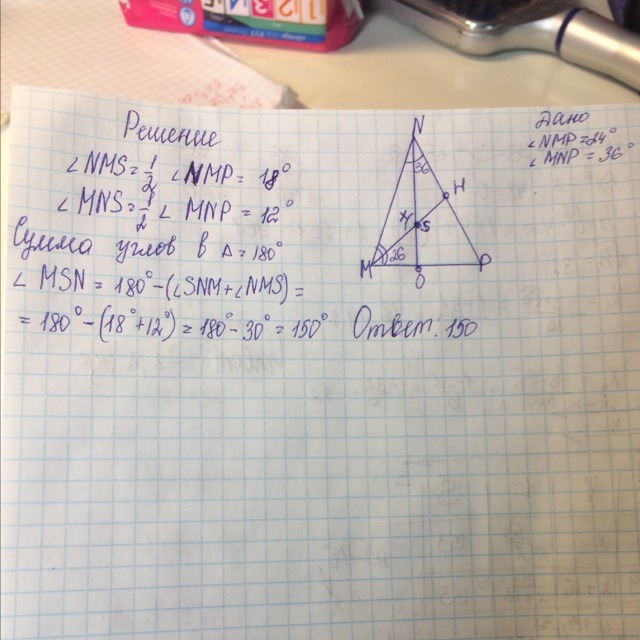 Решение
∠NMS = 1/2 ∠NMP = 18°
∠MNS = 1/2 ∠ MNP = 12°
Сумма углов в Δ = 180°
∠ MSN = 180° - (∠SNM + ∠NMS) =
= 180° - (18° + 12°) = 180° - 30° = 150°
Ответ: 150
Дано
∠NMP = 24°
∠ MNP = 36°
N
36
H
S
M
26
O
P